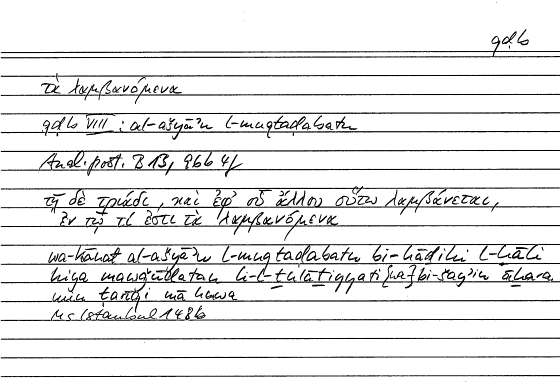 qḍb
τὰ λαμβανόμενα
qḍb VIII : al-ašyāʾu l-muqtaḍabatu
Anal. post. B 13, 96b 4f
τῇ δὲ τριάδι, καὶ ἐφ᾽ οὗ ἄλλου οὕτω λαμβάνεται,
ἐν τῷ τί ἐστι τὰ λαμβανόμενα
wa-kānat al-ašyāʾu l-muqtaḍabatu bi-hāḏihi l-ḥāli
hiya maḥmūlatan li-l-ṯulāṯiyyati [wa] bi-šayʾin āḫara
min ṭarīqi mā huwa
Ms Istanbul 148b